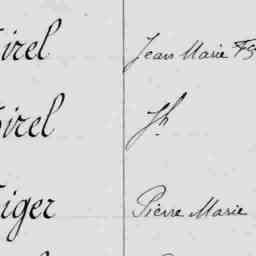 irel Jean Marie Fs
irel Jh
iger Pierre Marie